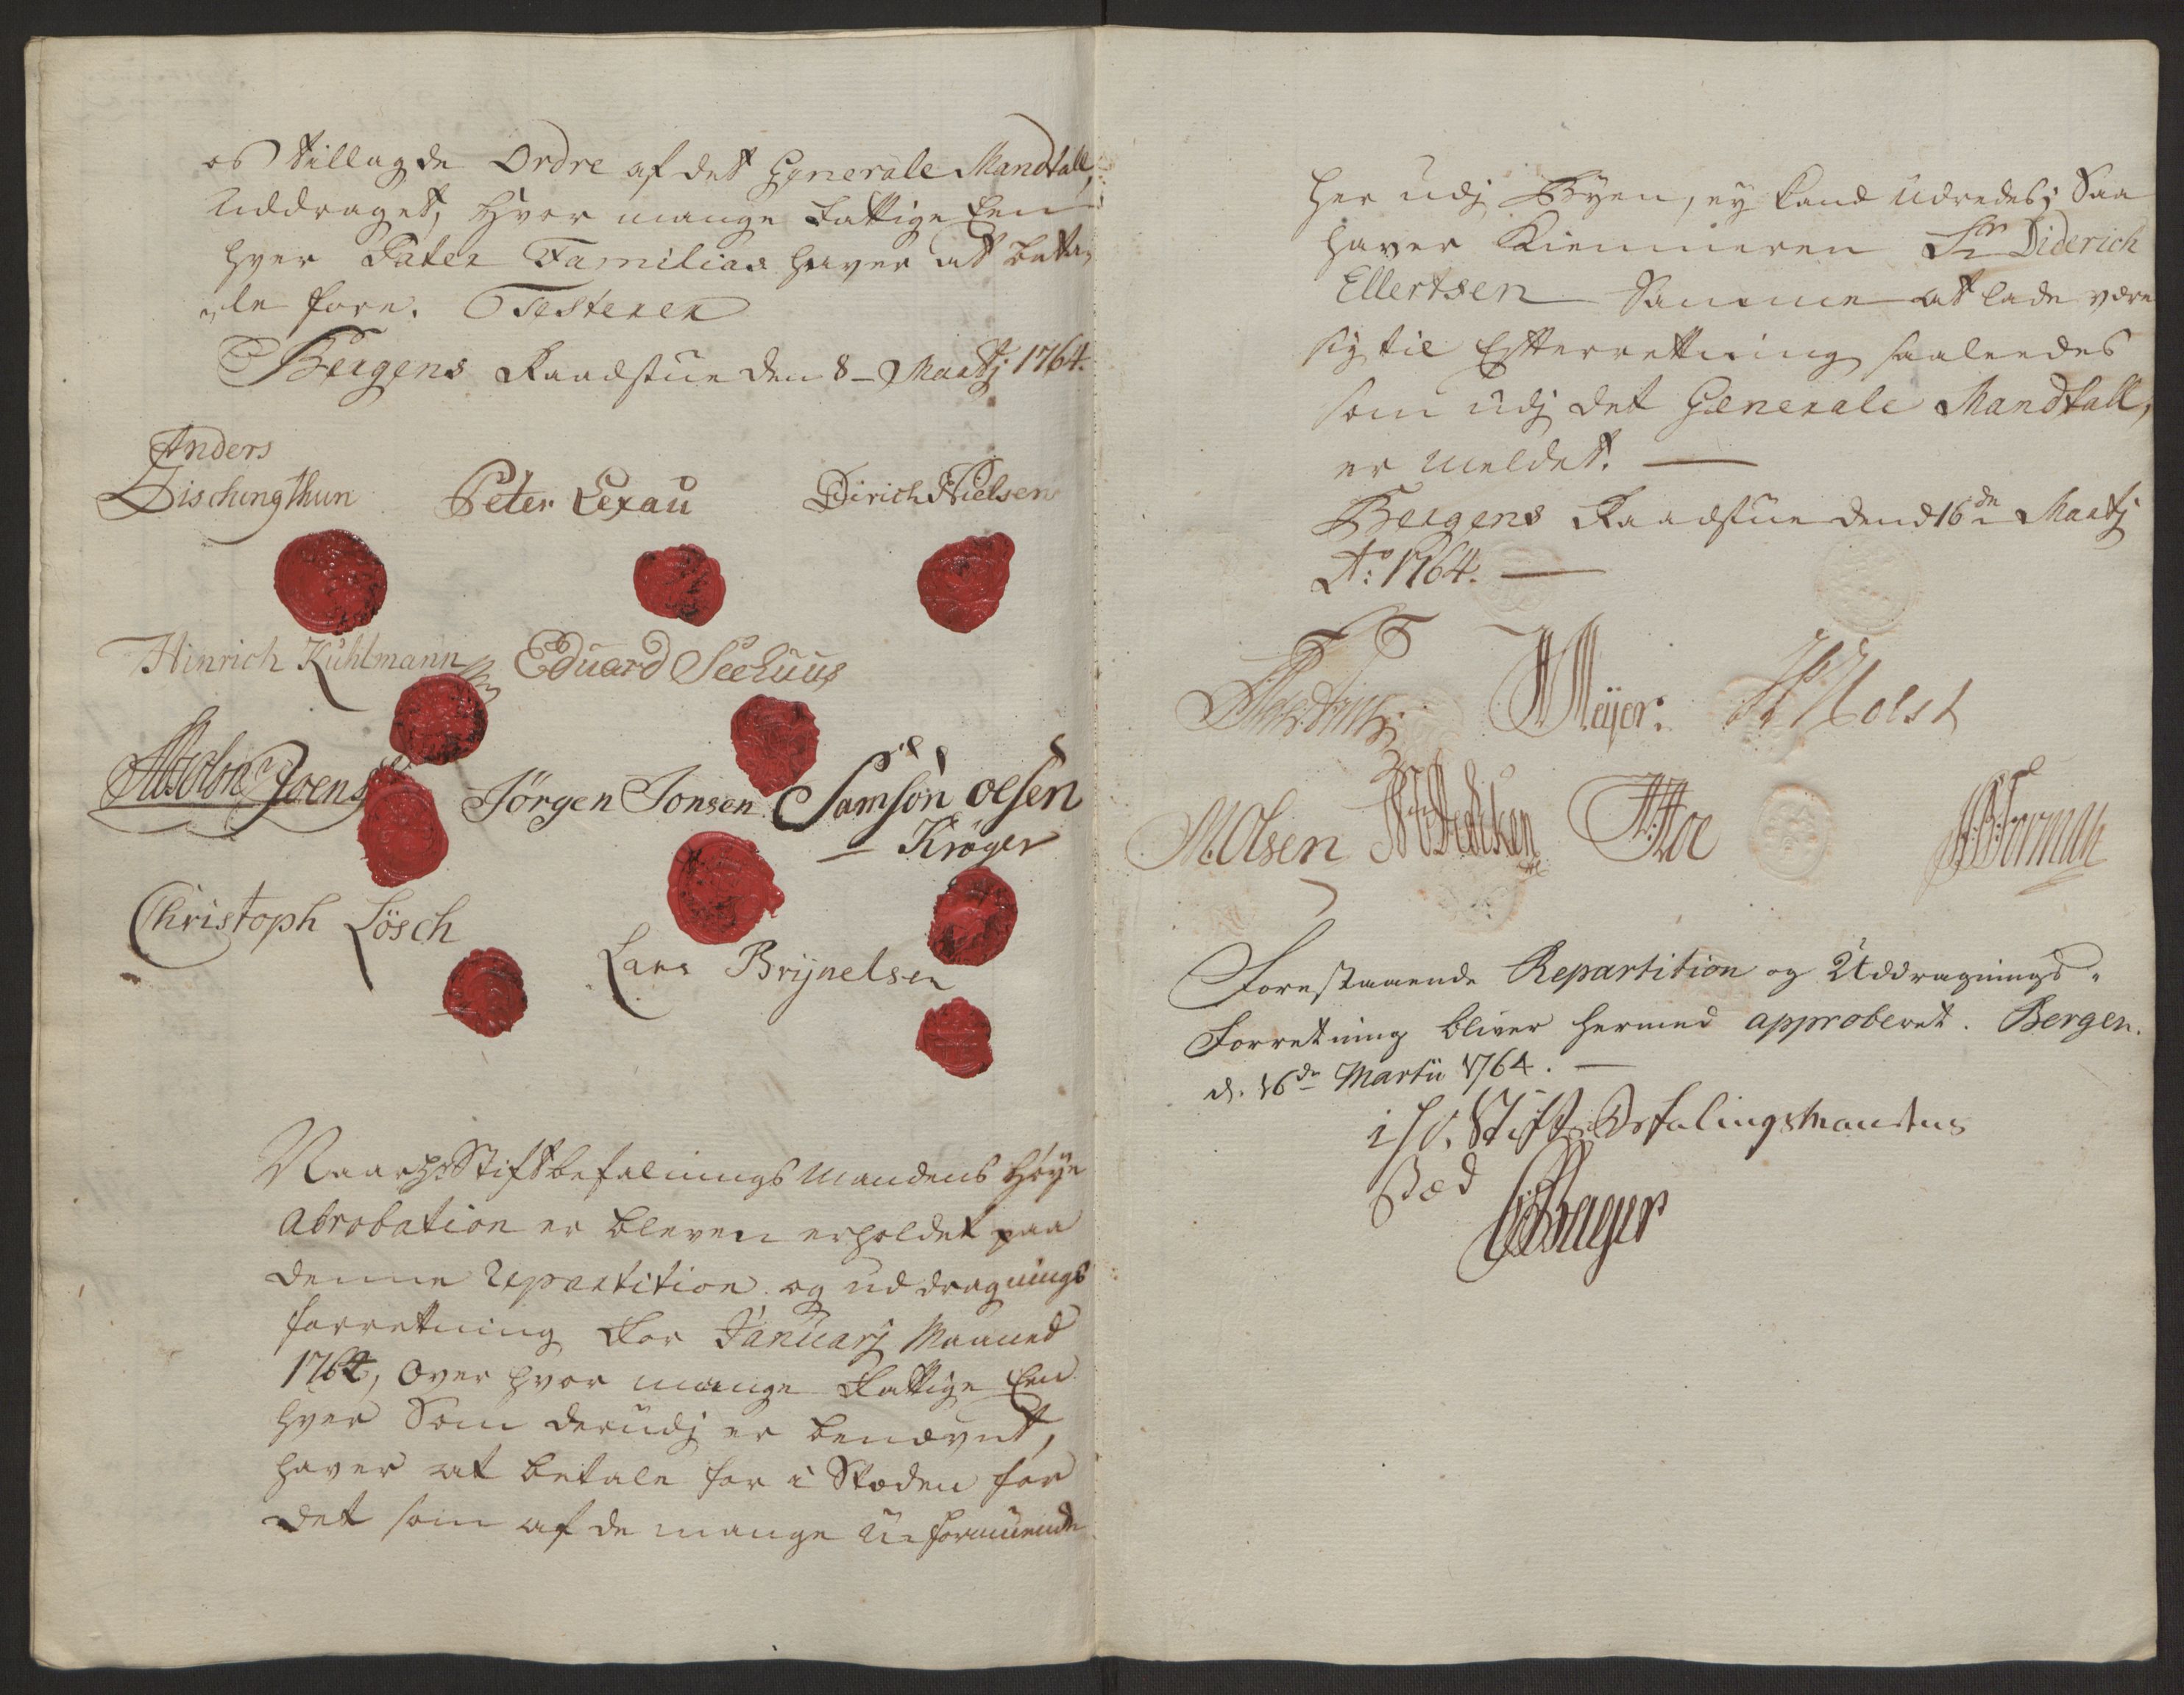 os tillagde Ordre af det Generale Mandtall,
Uddraget, hvor mange Fattige Een
hver Pater Familias haver at beta,
,,le fore. Testerer
Bergens Raadstue den 8 - Martj 1764.
Anders
Dischingthun Peter Lexau Dirich Nielsen
Hinrich Kuhlmann Eduard Seehuus
Joens Jörgen Jonsen Samson olsen
Kröger
Christoph Lösch
Lars Brynelsen
Naar Hr Stiftbefalnings Mandens Høye
Abrobation er bleven erholdet paa
denne Repartition og uddragnings
forretning for Januarj Maaned
1764, over hvor mange Fattige Een
hver Som derudj er benævnt,
haver at betale for i Stæden for
det som af de mange Uformuende
her udj Byen, ey kand udredes; Saa
haver Kiemneren Sr Diderich
Ellertsen Samme at lade være
sig til Efterretning saaledes
som udj det Generale Mandtall,
er meldet. —
Bergens Raadstue dend 16de Martj
Ao: 1764. —
Meyer: Holst
M. Olsen
Forestaaende Repartition og Uddragnings-
Forretning bliver hermed approberet. Bergen.
d. 16de Martii 1764. —
i Hr. Stift Befalingsmandens
Sted